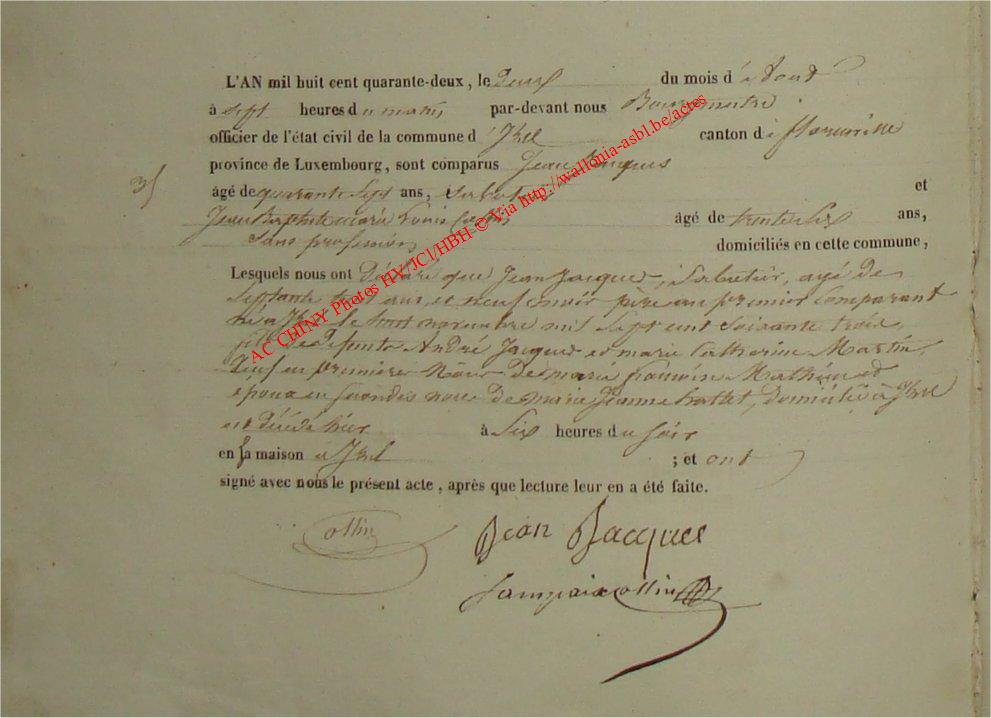 L'AN mil huit cent quarante-deux, le deux du mois d'Aout
à sept heures du matin par-devant nous Bourgmestre
officier de l'état civil de la commune d'Izel canton de florenville
province de Luxembourg, sont comparus Jean Jacques
3
âgé de quarante sept ans, Sabotier et
Jean Baptiste marie Louis Collin âgé de trente six ans,
sans profession domiciliés en cette commune,
Lesquels nous ont Déclaré que Jean Jacques, Sabotier, agé de
Septante ans, et neuf mois père au premier Comparant
né à Izel le novembre mil Sept cent Soixante trois,
fils de défunts André Jacques et marie Catherine Martin,
Veuf en premières Noces de marie Mathieu et
époux en secondes noces de marie Jeanne, Domicilié à Izel
est décédé hier à Six heures du soir
en sa maison à Izel ; et ont
signé avec nous le présent acte, après que lecture leur en a été faite.
Collin Jean Jacques
Collin
AC CHINY Photos HX/JCl/HBH © Via http://wallonia-asbl.be/actes